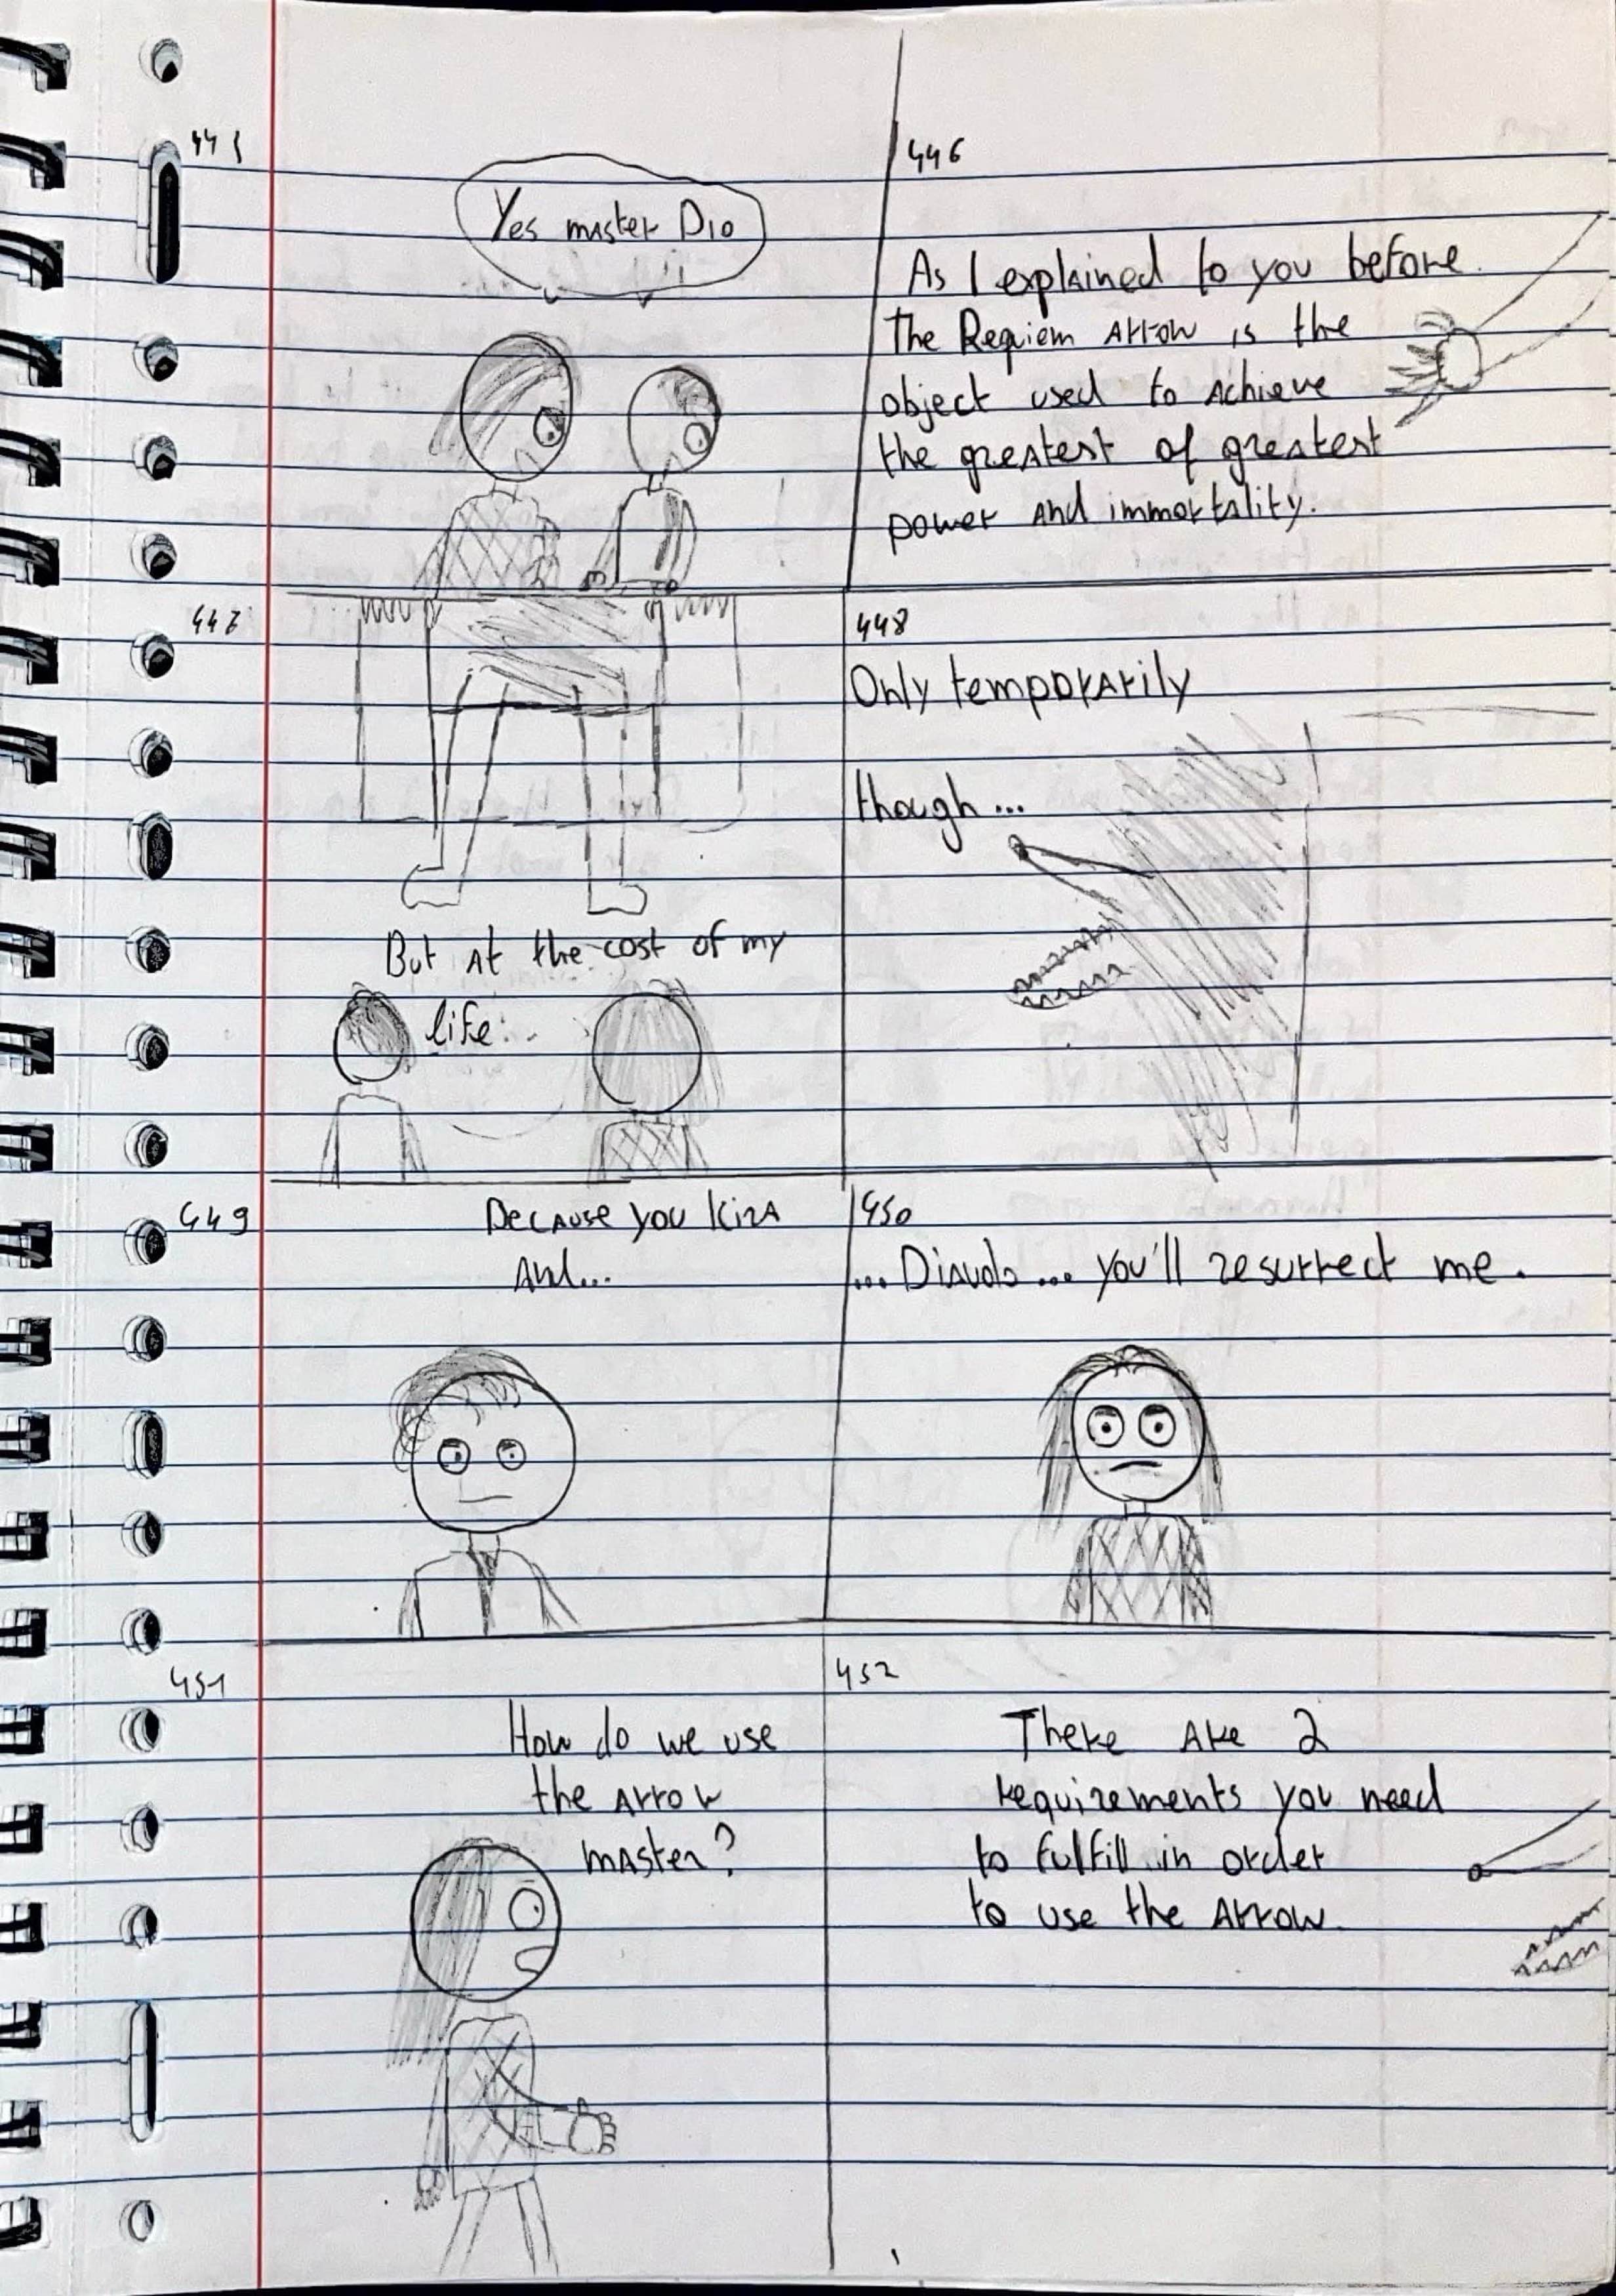 445
Yes master Dio
446
As I explained to you before.
The Requiem Arrow is the
object used to achieve
the greatest of greatest
power and immortality.
447
But at the cost of my
life...
448
Only temporarily
though...
449
Because you Kira
and...
450
... Diavolo ... you'll resurrect me.
451
How do we use
the arrow
master?
452
There are 2
requirements you need
to fulfill in order
to use the arrow.